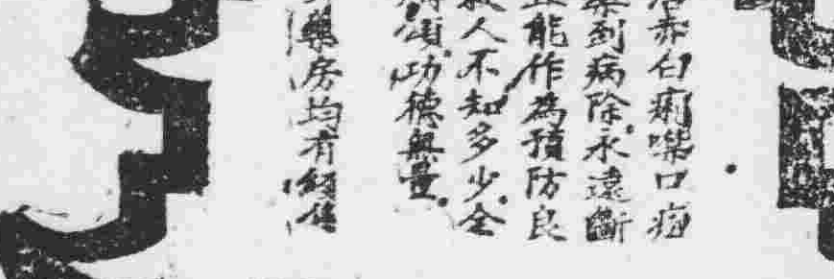 赤白痢噤口痢
藥到病除永遠斷
能作為預防良
救人不知多少全
頌功德無量
藥房均有經售